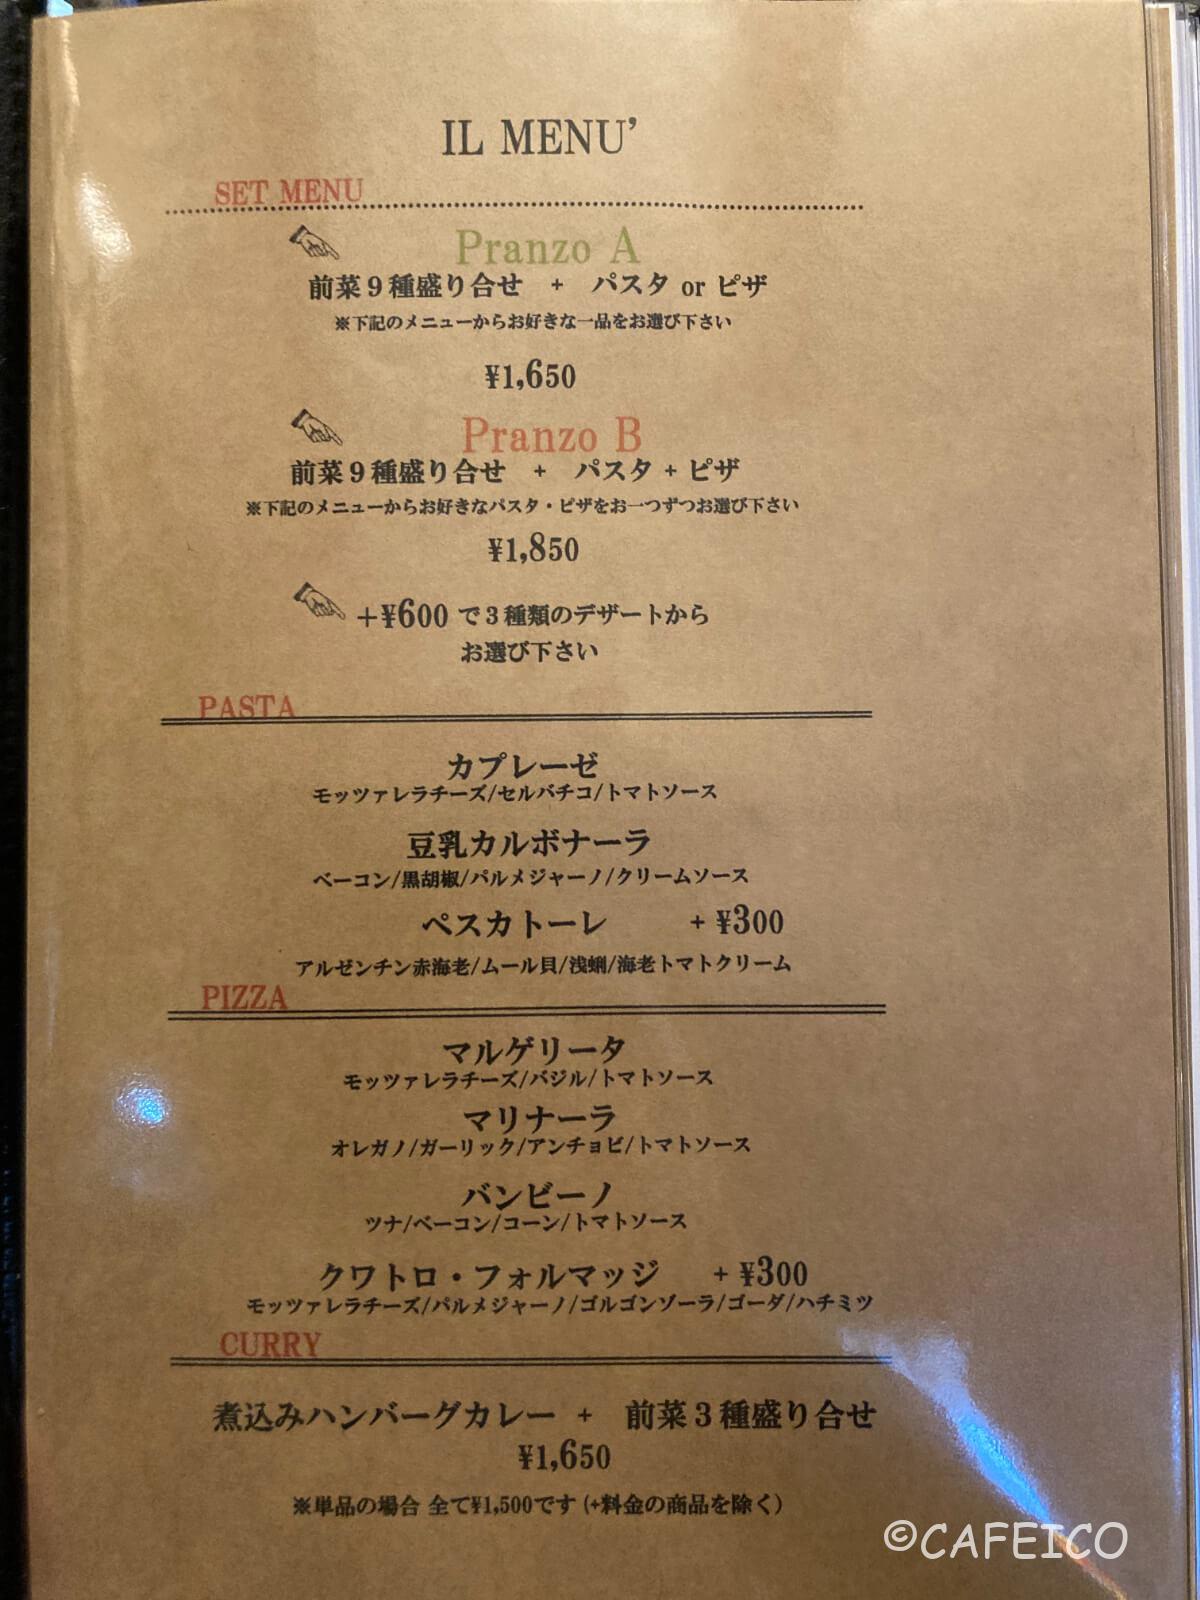 IL MENU’
SET MENU
Pranzo A
前菜９種盛り合せ + パスタ or ピザ
※下記のメニューからお好きな一品をお選び下さい
¥1,650
Pranzo B
前菜９種盛り合せ + パスタ + ピザ
※下記のメニューからお好きなパスタ・ピザをお一つずつお選び下さい
¥1,850
+¥600 で３種類のデザートから
お選び下さい
PASTA
カプレーゼ
モッツァレラチーズ/セルバチコ/トマトソース
豆乳カルボナーラ
ベーコン/黒胡椒/パルメジャーノ/クリームソース
ペスカトーレ + ¥300
アルゼンチン赤海老/ムール貝/浅蜊/海老トマトクリーム
PIZZA
マルゲリータ
モッツァレラチーズ/バジル/トマトソース
マリナーラ
オレガノ/ガーリック/アンチョビ/トマトソース
バンビーノ
ツナ/ベーコン/コーン/トマトソース
クワトロ・フォルマッジ + ¥300
モッツァレラチーズ/パルメジャーノ/ゴルゴンゾーラ/ゴーダ/ハチミツ
CURRY
煮込みハンバーグカレー + 前菜３種盛り合せ
¥1,650
※単品の場合 全て¥1,500です (+料金の商品を除く)
©CAFEICO